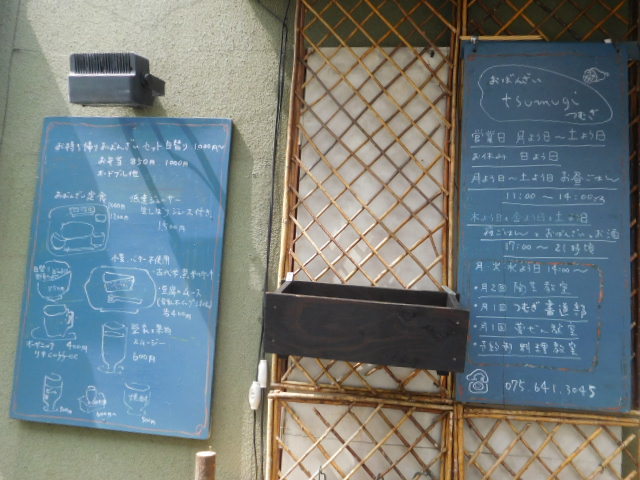 お持ち帰りおばんざいセット日替り 1000円～
お弁当 850円 1000円
オードブル他
おばんざい定食
1000円
1200円
低速ジューサー
生しぼりジュース付き
1500円
小麦、バター不使用
400円
野菜と果物
スムージー
600円
オーガニック 400円
coffee
500円
600円
500円
おばんざい
tsumugi
つむぎ
営業日 月よう日～土よう日
お休み 日よう日
月よう日～土よう日 お昼ごはん
11:00～14:00
木よう日 金よう日 土よう日
夜ごはん おばんざい お酒
17:00～21時
月・火・水よう日 14:00～
・月2回 陶芸教室
・月1回 つむぎ書道部
・月1回 教室
・予約制 料理教室
075.641.3045